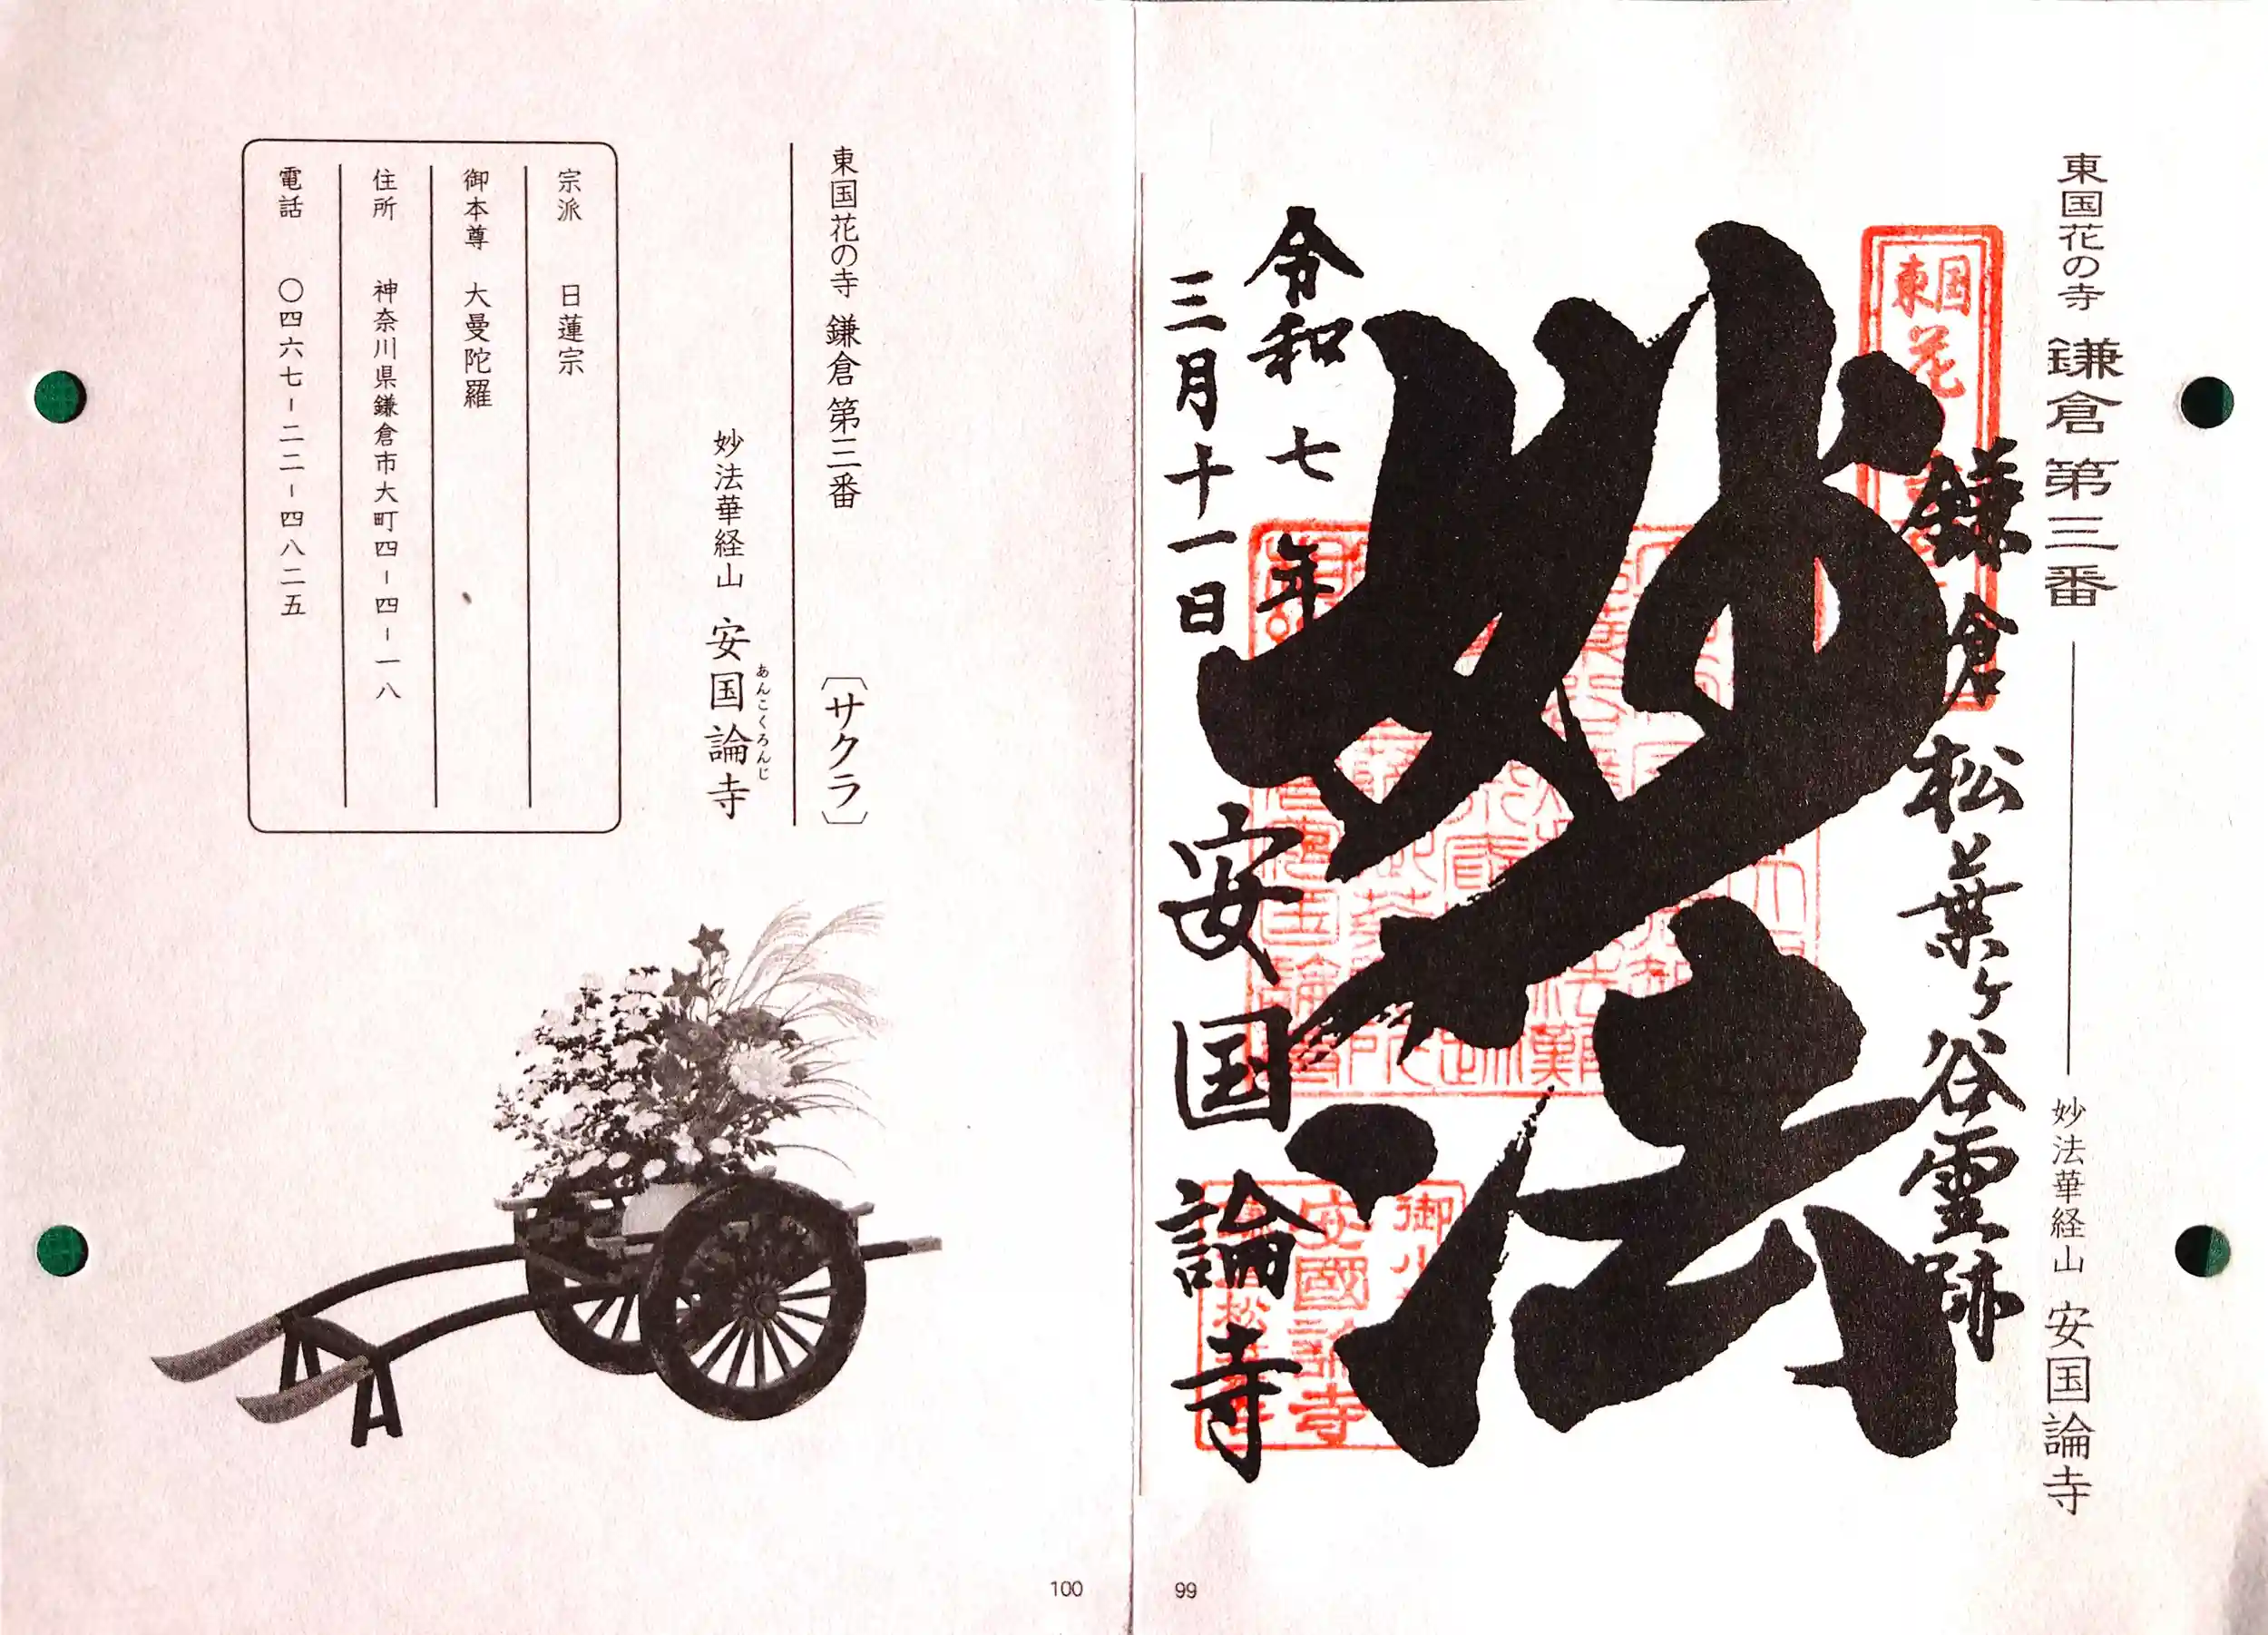 東国花の寺 鎌倉 第三番 妙法華経山 安国論寺
東国花
鎌倉松葉ヶ谷霊跡
妙法
令和七年
三月十一日
安国論寺
御小
安國論寺
松
99
東国花の寺 鎌倉 第三番 〔サクラ〕
妙法華経山 安国論寺
あんこくろんじ
宗派 日蓮宗
御本尊 大曼陀羅
住所 神奈川県鎌倉市大町四-四-一八
電話 〇四六七-二二-四八二五
100